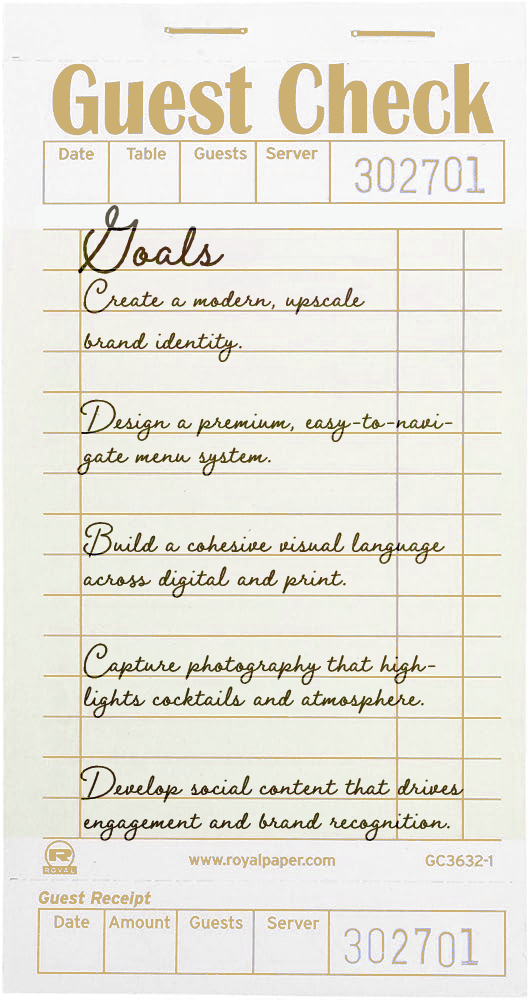 Guest Check
Date Table Guests Server 302701
Goals
Create a modern, upscale
brand identity.
Design a premium, easy-to-navi-
gate menu system.
Build a cohesive visual language
across digital and print.
Capture photography that high-
lights cocktails and atmosphere.
Develop social content that drives
engagement and brand recognition.
R
ROYAL www.royalpaper.com GC3632-1
Guest Receipt
Date Amount Guests Server 302701